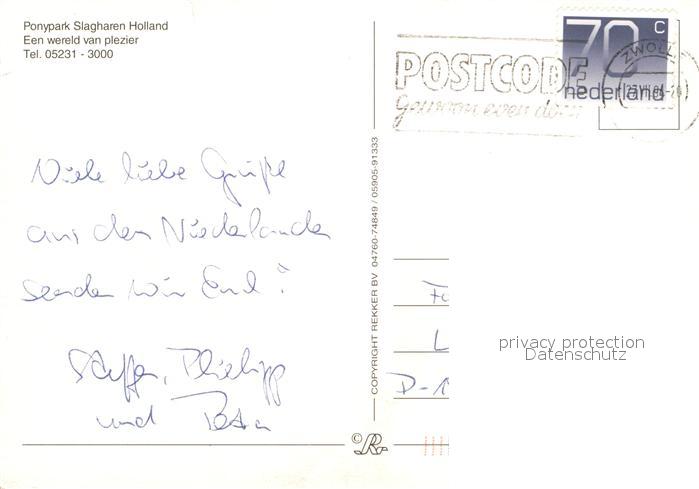 Ponypark Slagharen Holland
Een wereld van plezier
Tel. 05231 - 3000
70 c
nederland
POSTCODE
Gewoon even doen
ZWOLLE
Viele liebe Grüße
aus den Niederlanden
senden wir Euch
Steffen, Philipp
und
COPYRIGHT REKKER BV 04760-74849 / 05905-91333
L
D-1
privacy protection
Datenschutz
©R